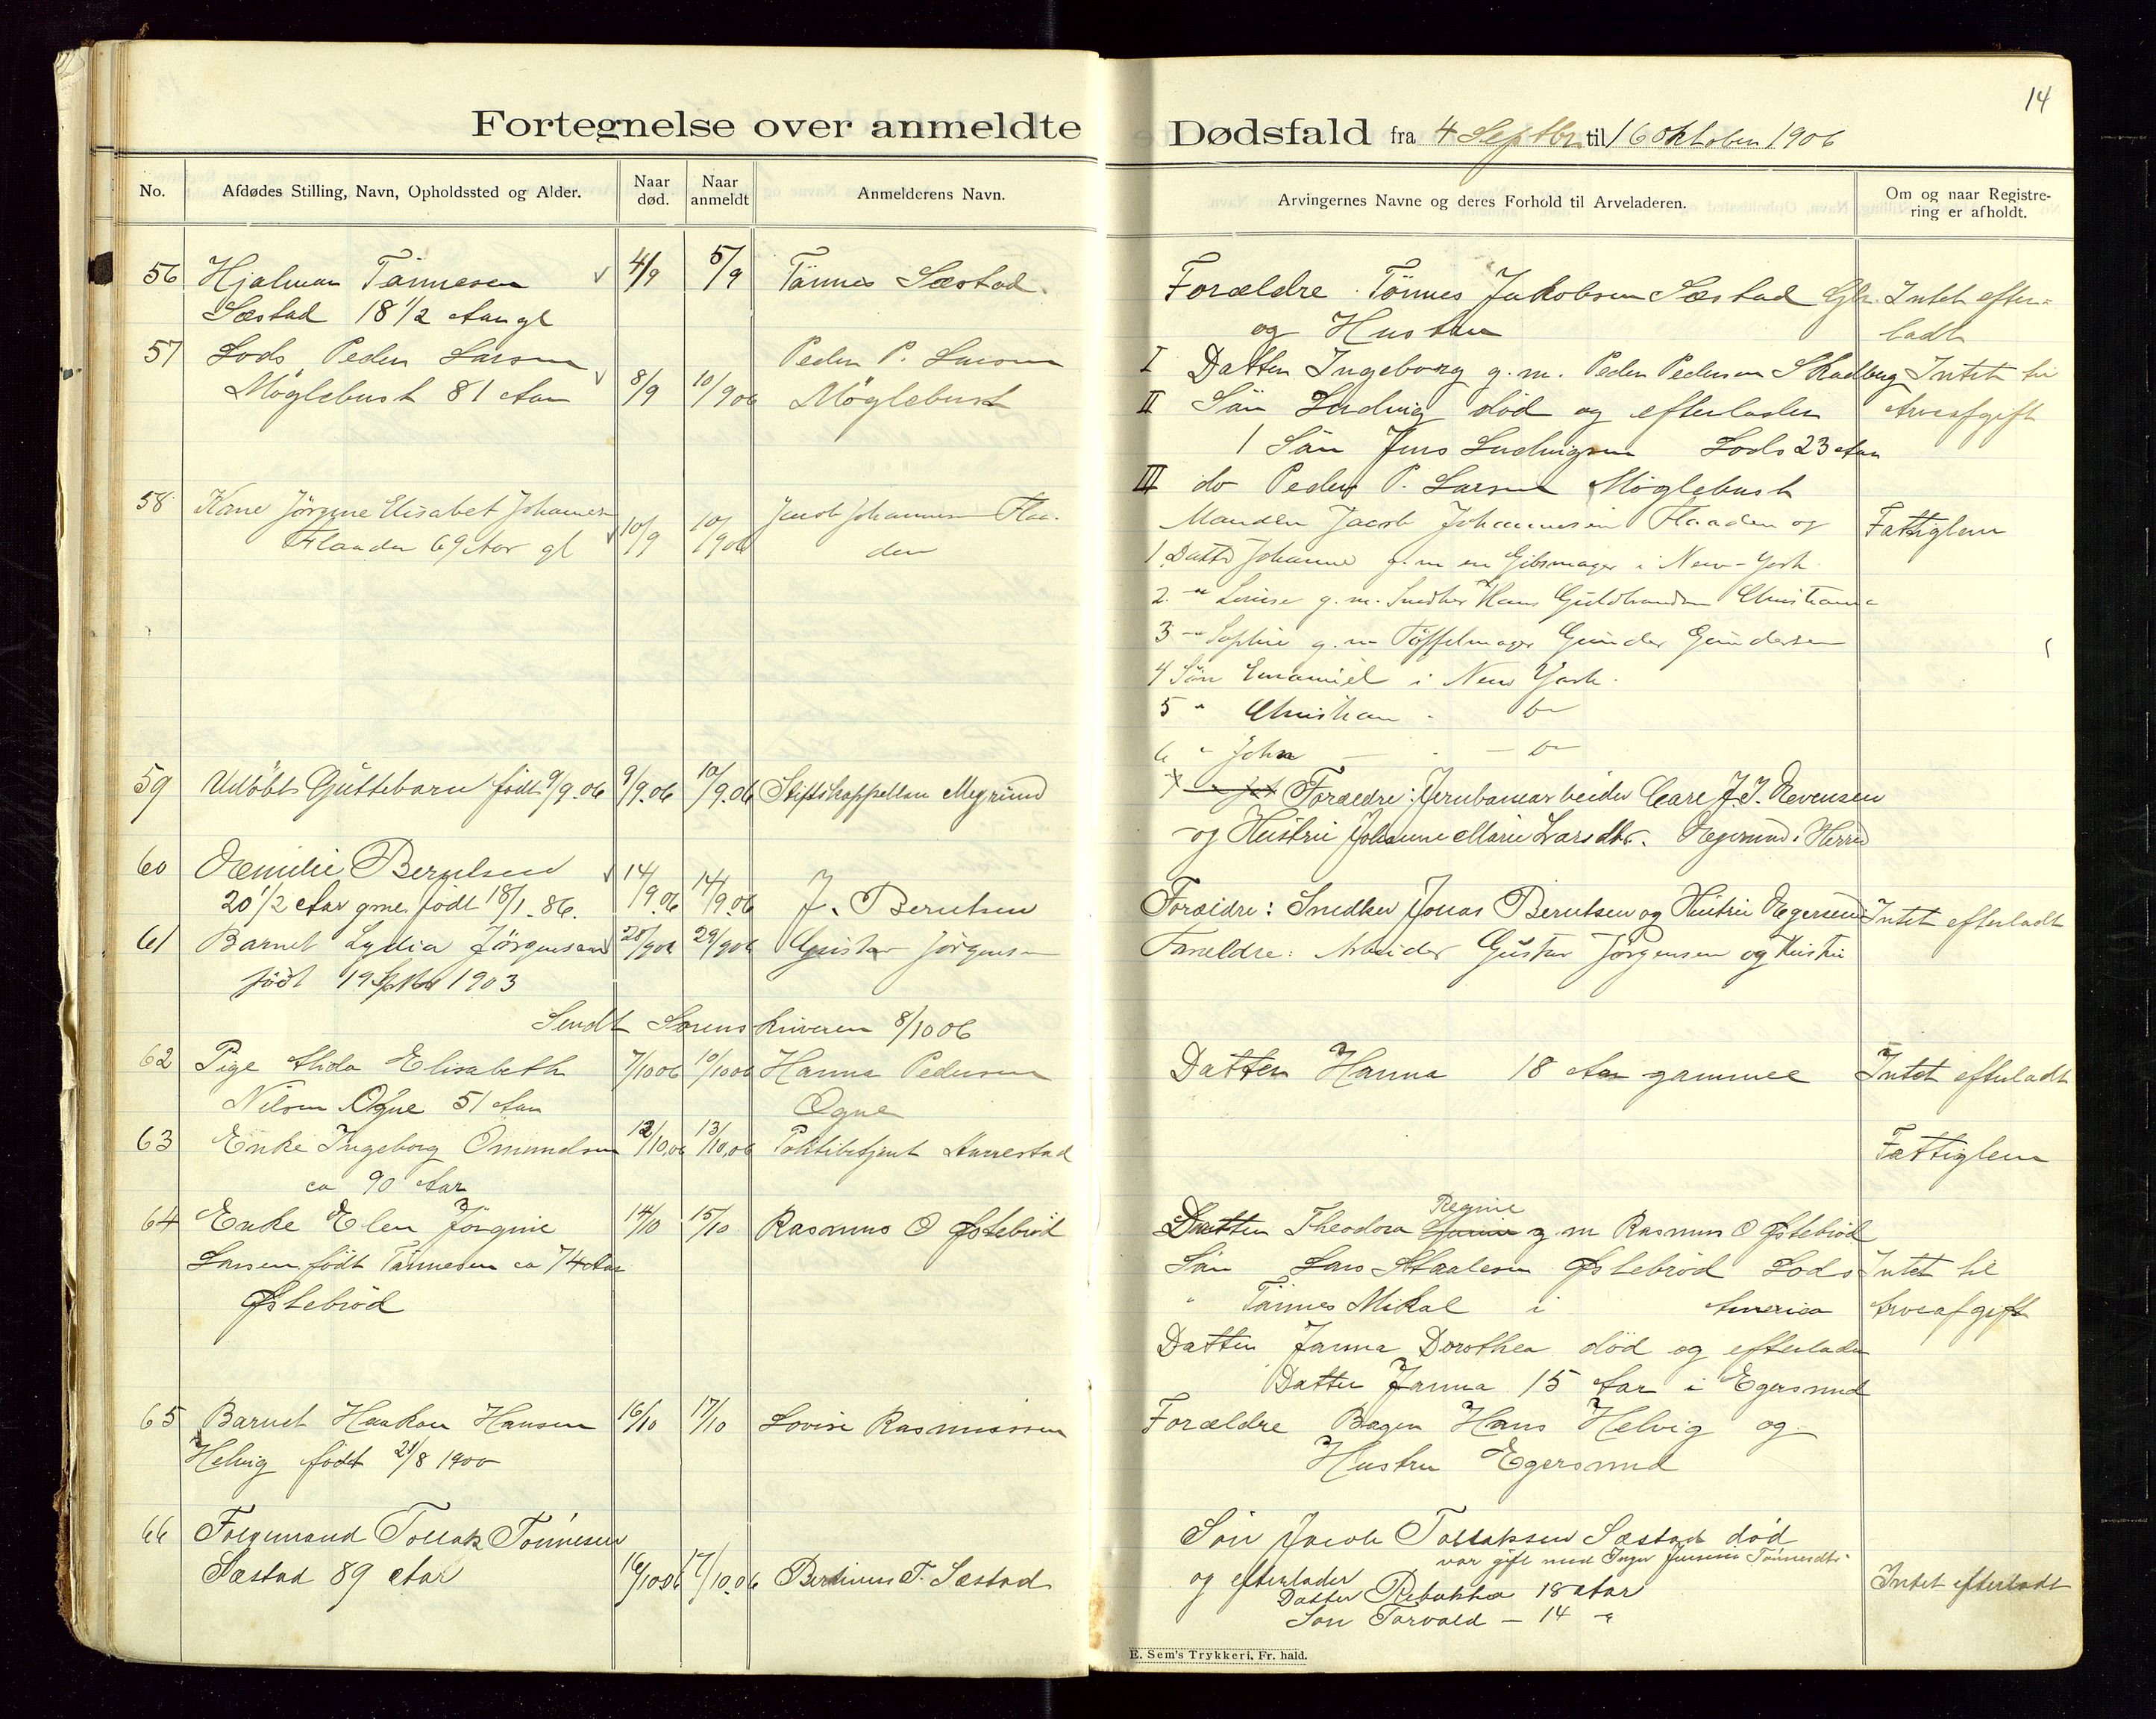 14
Fortegnelse over anmeldte Dødsfald fra 4 Septbr til 16 Oktober 1906
No. Afdødes Stilling, Navn, Opholdssted og Alder. Naar død. Naar anmeldt Anmelderens Navn. Arvingernes Navne og deres Forhold til Arveladeren. Om og naar Registrering er afholdt.
56 Hjalmar Tønnesen 4/9 5/9 Tønnes Sæstad. Forældre Tønnes Jakobsen Sæstad Intet efter=
Sæstad 18 1/2 Aar gl og Hustru ladt
57 Lods Peder Larsen Peder P. Larsen I Datter Ingeborg g.m. Peder Pedersen Skadberg Intet til
Møglebust 81 Aar 8/9 10/9 06 Møglebust II Søn Ludvig død og efterlader Arveafgift
1 Søn Jens Ludvigsen Lods 23 Aar
III do Peder P. Larsen Møglebust
58 Kone Jørgine Elisabet Johannes Jacob Johannesen Flaa- Manden Jacob Johannesen Flaaden og Fattiglem
Flaaden 69 Aar gl 10/9 10/9 06 den 1 Datter Johanne g.m en Gibsmager i New-York
2. -"- Lovise g.m. Snedker Hans Guldbrandsen Christiania
3 -"- Sophie g.m Tøffelmager Gunder Gundersen
4 Søn Emanuel i New York.
5 " Christian - do
6 " John - do
59 Udøbt Guttebarn født 9/9.06 9/9.06 10/9.06 Stiftskappellan Megrund Forældre: Jernbanearbeider Carl J.J. Evensen
og Hustru Johanne Marie Larsdtr. Egersund Herred
60 Emilie Berntsen 14/9.06 14/9.06 J. Berntsen
20 1/2 Aar gml. født 18/1.86. Forældre: Snedker Jonas Berntsen og Hustru Egersund Intet efterladt
61 Barnet Lydia Jørgensen 28/9 06 29/9 06 Gustav Jørgensen Forældre: Arbeider Gustav Jørgensen og Hustru
født 19 Septbr 1903
Sendt Sorenskriveren 8/10 06
62 Pige Alida Elisabeth 7/10 06 10/10 06 Hanna Pedersen Datter Hanna 18 Aar gammel Intet efterladt
Nilsen Ogne 51 Aar Ogne
63 Enke Ingeborg Omundsen 12/10.06 13/10.06 Politibetjent Aarrestad Fattiglem
ca 90 Aar
64 Enke Elen Jørgine 14/10 15/10 Rasmus O Østebrød Datter Theodora Regine g m Rasmus O Østebrød
Larsen født Tønnesen ca 74 Aar Søn Lars Staalesen Østebrød Lods Intet til
Østebrød " Tønnes Mikal i America Arveafgift
Datter Janna Dorothea død og efterlader
Datter Janna 15 Aar i Egersund
65 Barnet Haakon Hansen 16/10 17/10 Lovise Rasmussen Forældre Bager Hans Helvig og
Helvig født 21/8 1900 Hustru Egersund
66 Folgemand Tollak Tønnesen Søn Jacob Tollaksen Sæstad død
var gift med Inger Tønnesdtr.
Sæstad 89 Aar 16/10 06 17/10.06 Bertinius T. Sæstad og efterlader Intet efterladt
Datter Rebekka 18 Aar
Søn Torvald - 14 - "
E. Sem's Trykkeri, Fr. hald.